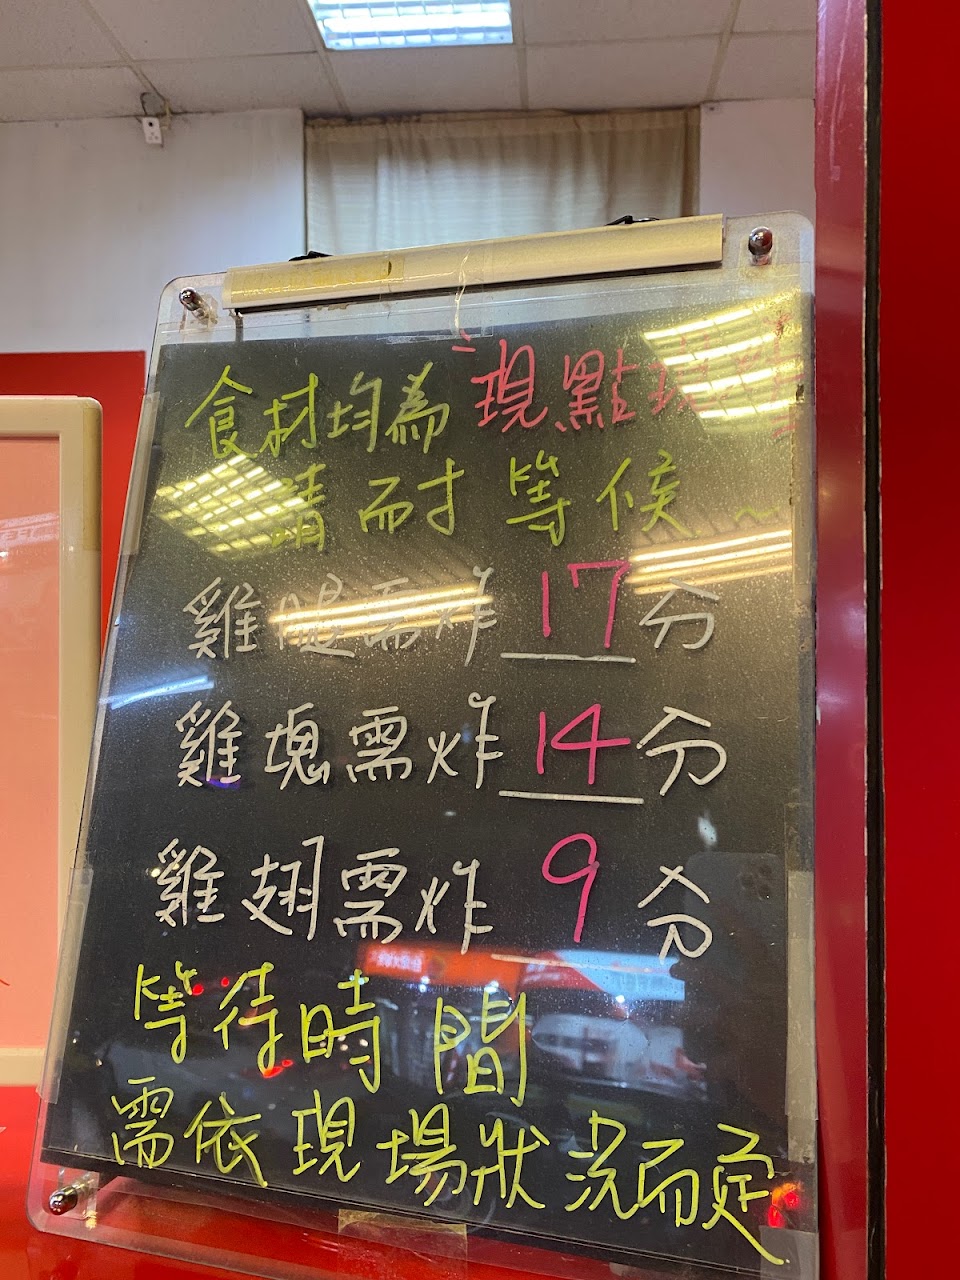 食材均為"現點現
請耐等候~
雞腿需炸17分
雞塊需炸14分
雞翅需炸9分
等待時間
需依現場狀況而定